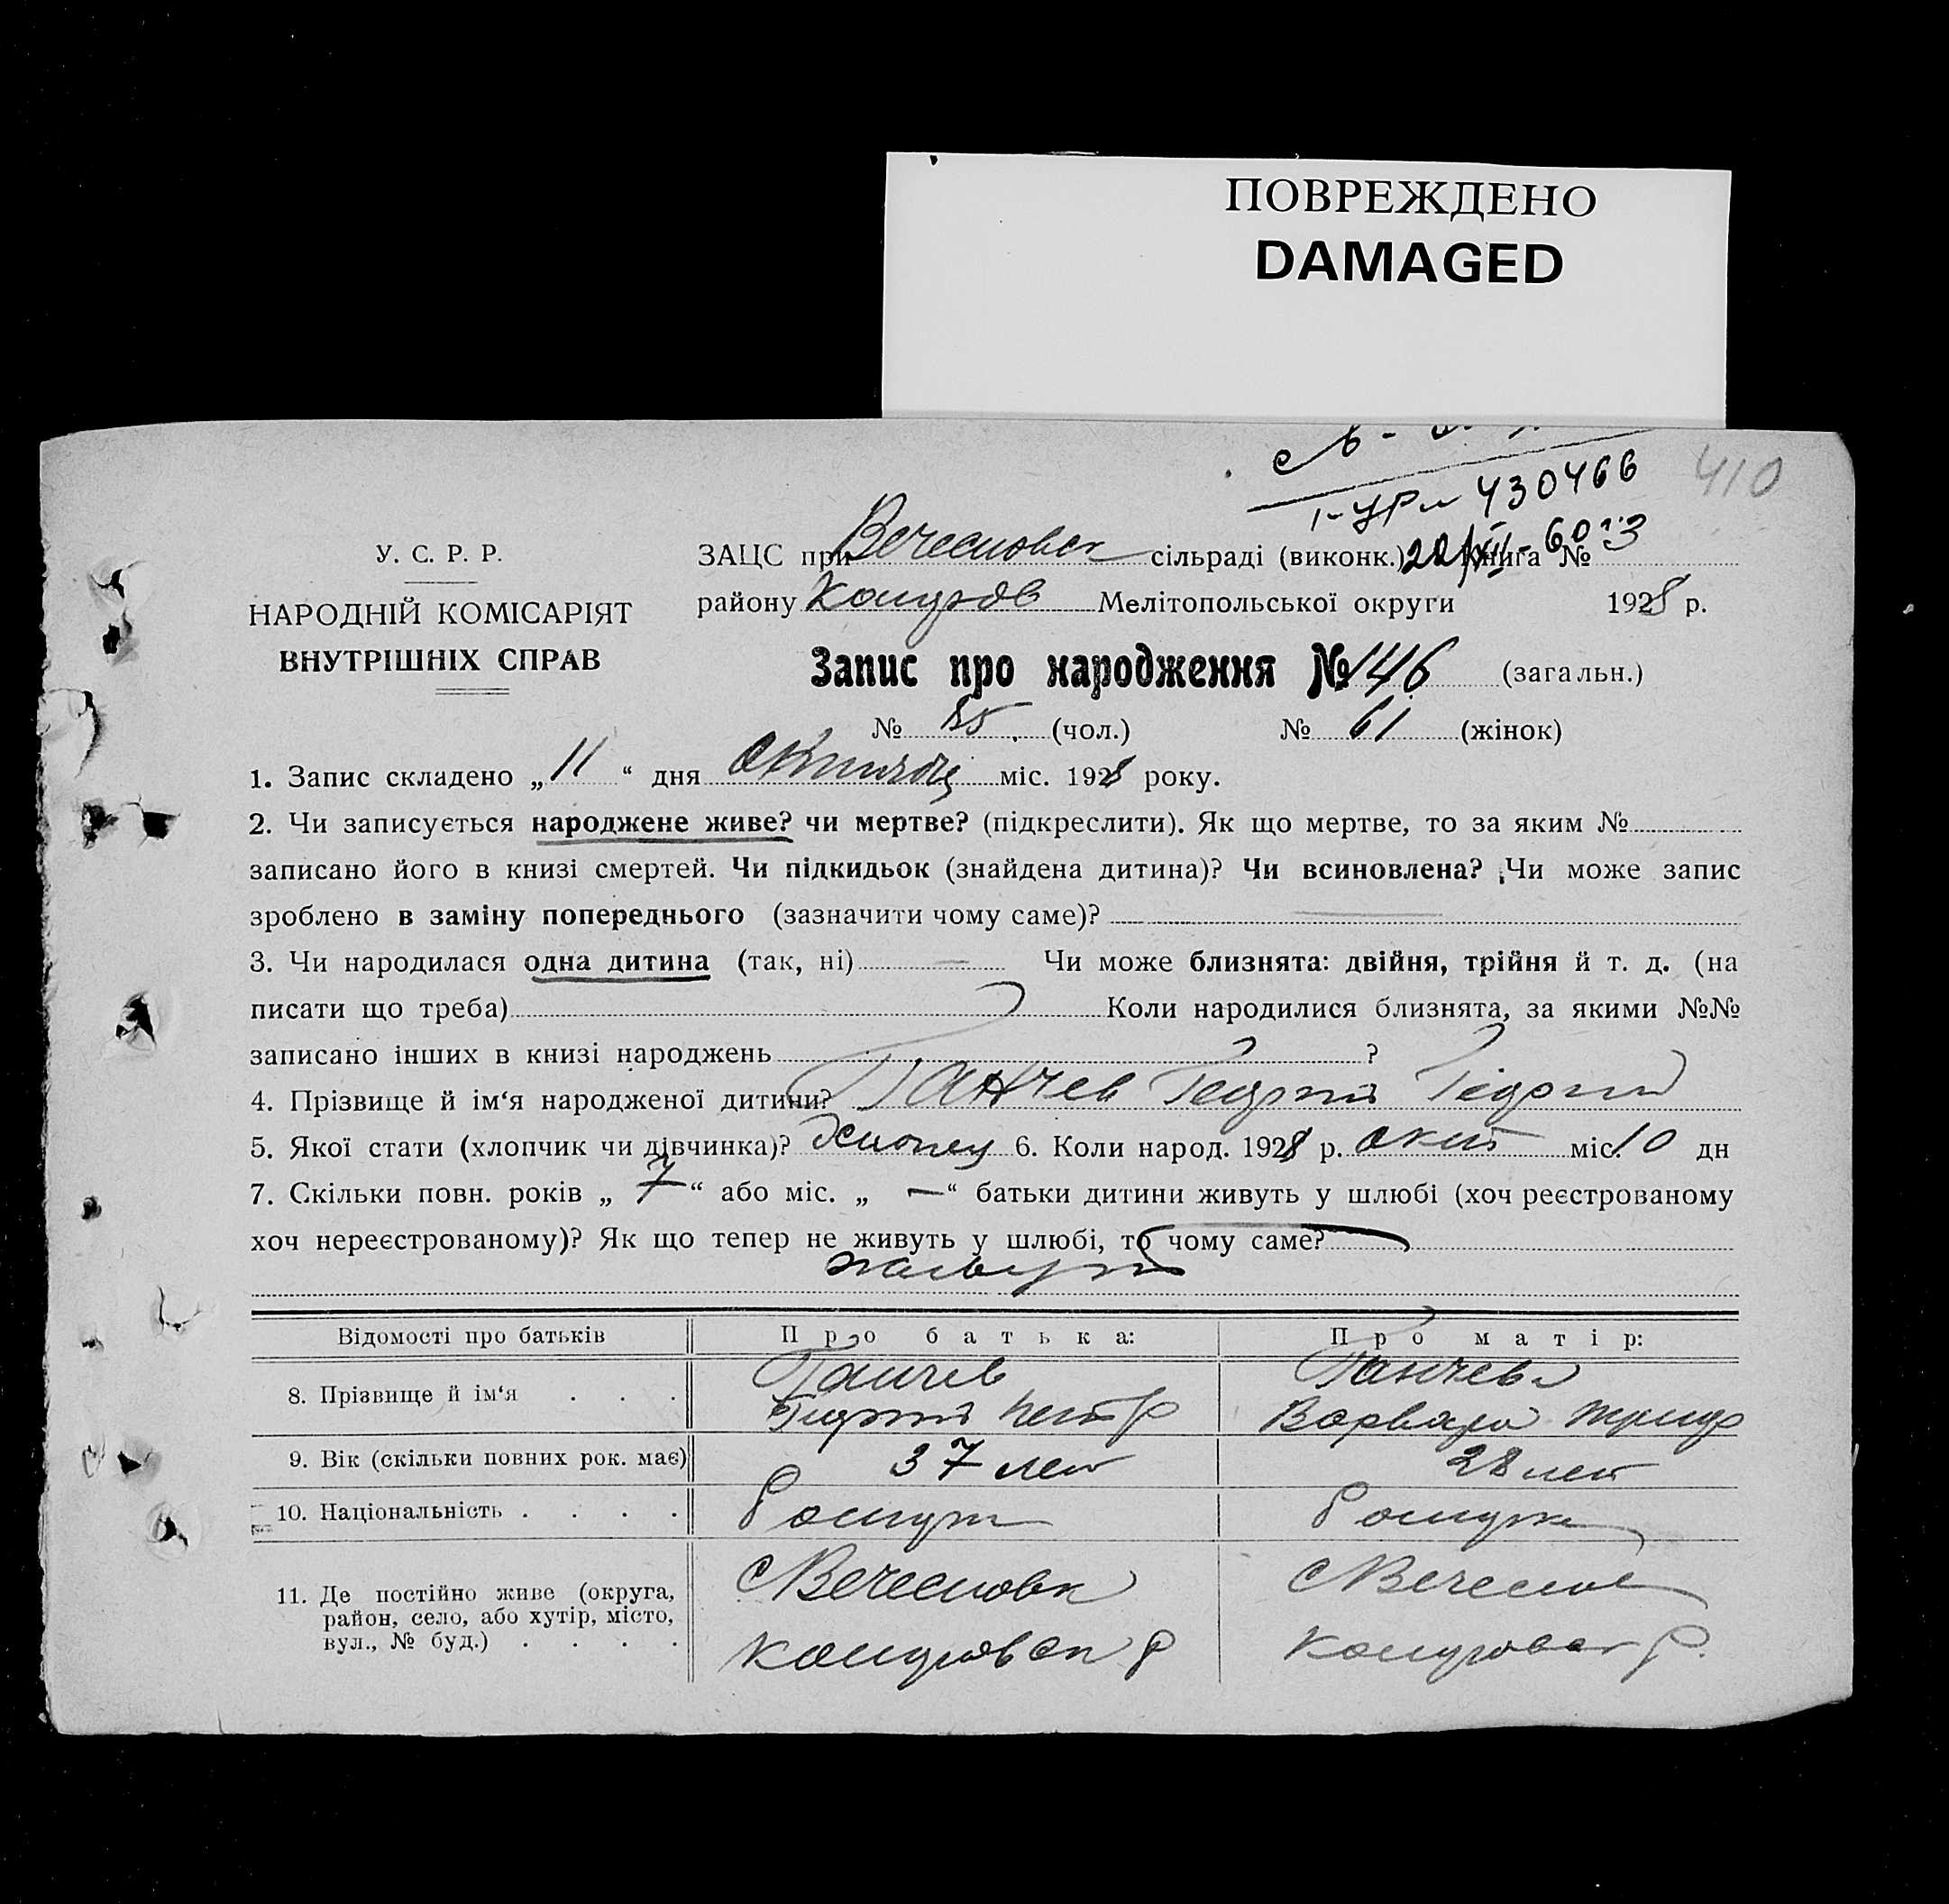 ПОВРЕЖДЕНО
DAMAGED
430466
410
У. С. Р. Р.
НАРОДНІЙ КОМІСАРІЯТ
ВНУТРІШНІХ СПРАВ
ЗАЦС при сільраді (виконк.) Книга №
району Мелітопольської округи 1928 р.
Запис про народження № 146 (загальн.)
№ 85 (чол.) № 61 (жінок)
1. Запис складено „ 11 “ дня міс. 1928 року.
2. Чи записується народжене живе? чи мертве? (підкреслити). Як що мертве, то за яким №
записано його в книзі смертей. Чи підкидьок (знайдена дитина)? Чи всиновлена? Чи може запис
зроблено в заміну попереднього (зазначити чому саме)?
3. Чи народилася одна дитина (так, ні) — Чи може близнята: двійня, трійня й т. д. (на
писати що треба) Коли народилися близнята, за якими №№
записано інших в книзі народжень ?
4. Прізвище й ім‘я народженої дитини? Ганчев Георгий Георгий
5. Якої стати (хлопчик чи дівчинка)? Хлопец 6. Коли народ. 1928 р. окт міс. 10 дн
7. Скільки повн. років „ 7 “ або міс. „ — “ батьки дитини живуть у шлюбі (хоч реєстрованому
хоч нереєстрованому)? Як що тепер не живуть у шлюбі, то чому саме?
живут
Відомості про батьків Про батька: Про матір:
8. Прізвище й ім‘я . . . Ганчев Ганчева
Георгий Петр Варвара
9. Вік (скільки повних рок. має) 37 лет 28 лет
10. Національність . . . .
11. Де постійно живе (округа,
район, село, або хутір, місто,
вул., № буд.) . . . .